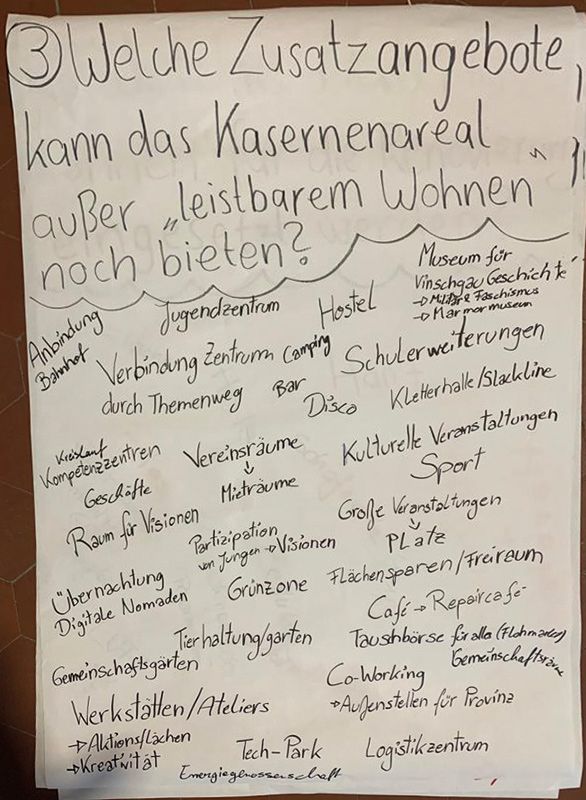 ③ Welche Zusatzangebote
kann das Kasernenareal
außer „leistbarem Wohnen"
noch bieten?
Museum für
Vinschgau Geschichte
→ Militär & Faschismus
→ Marmormuseum
Anbindung
Bahnhof
Jugendzentrum
Hostel
Verbindung Zentrum
durch Themenweg
Camping
Schulerweiterungen
Bar
Disco
Kletterhalle/Slackline
Kreislauf
Kompetenzzentren
Vereinsräume
↓
Mieträume
Kulturelle Veranstaltungen
Sport
Geschäfte
Raum für Visionen
Partizipation
von Jungen → Visionen
Große Veranstaltungen
↓
Platz
Übernachtung
Digitale Nomaden
Grünzone
Flächensparen/Freiraum
Café → Repaircafé
Tierhaltung/garten
Tauschbörse für alle (Flohmarkt)
Gemeinschaftsräume
Gemeinschaftsgärten
Co-Working
→ Außenstellen für Provinz
Werkstätten/Ateliers
→ Aktionsflächen
→ Kreativität
Tech-Park
Logistikzentrum
Energiegenossenschaft